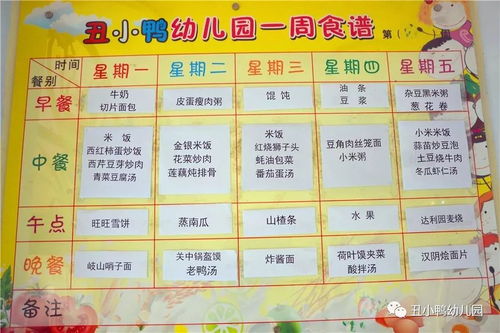 丑小鸭幼儿园一周食谱 第(
时间
餐别
星期一 星期二 星期三 星期四 星期五
早餐
牛奶
切片面包
皮蛋瘦肉粥
馄饨
油条
豆浆
杂豆黑米粥
葱花卷
中餐
米饭
西红柿蛋炒饭
西芹豆芽炒肉
青菜豆腐汤
金银米饭
花菜炒肉
莲藕炖排骨
米饭
红烧狮子头
蚝油包菜
番茄蛋汤
豆角肉丝笼面
小米粥
小米米饭
蒜苗炒豆泡
土豆烧牛肉
冬瓜虾仁汤
午点
旺旺雪饼
蒸南瓜
山楂条
水果
达利园麦烧
晚餐
岐山哨子面
关中锅盔馍
老鸭汤
炸酱面
荷叶馍夹菜
酸拌汤
汉阴烩面片
备注
丑小鸭幼儿园